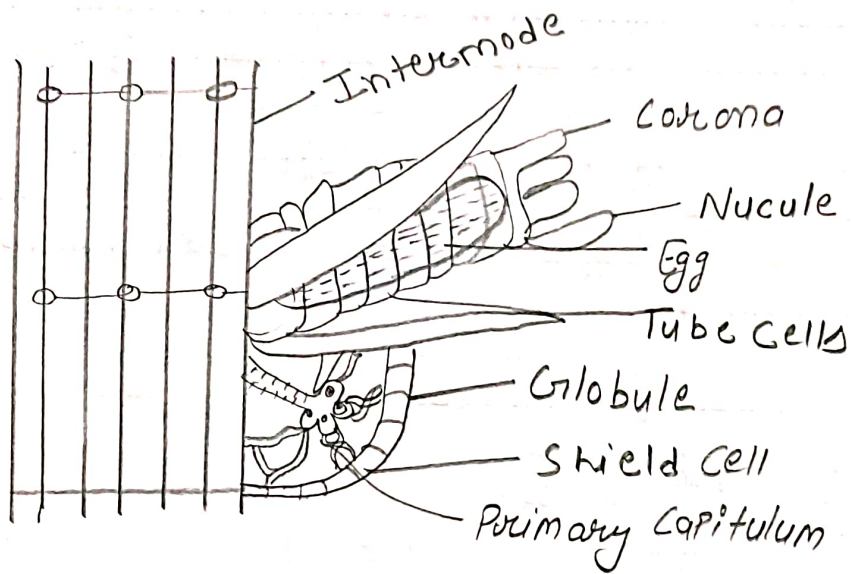 Internode
Corona
Nucule
Egg
Tube Cells
Globule
Shield Cell
Primary Capitulum